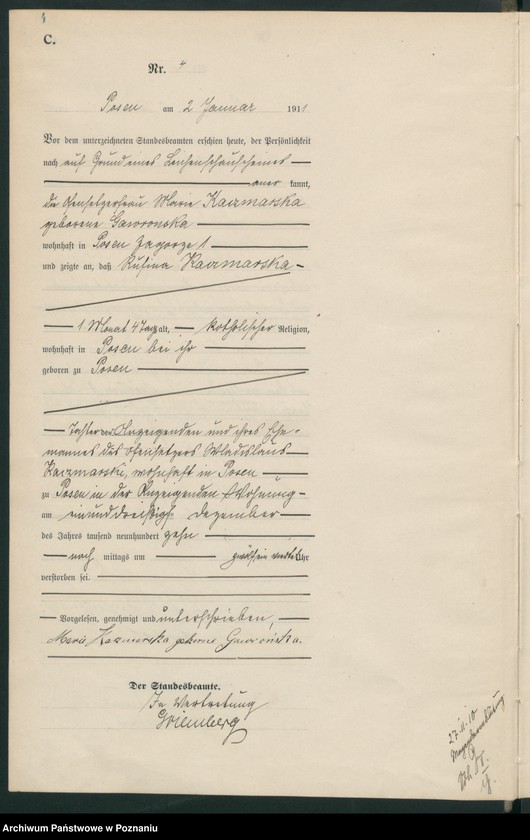 C.
Nr. 4
Posen am 2 Januar 1911
Vor dem unterzeichneten Standesbeamten erschien heute, der Persönlichkeit
nach auf Grund eines Leichenschauscheines
aner kannt,
die Ofensetzerfrau Marie Kaczmarska
geborene Gawronska
wohnhaft in Posen Zagorze 1
und zeigte an, daß Rufina Kaczmarska
1 Monat 4 Tage alt, katholischer Religion,
wohnhaft in Posen bei ihr
geboren zu Posen
Tochter der Anzeigenden und ihres Ehe-
mannes des Ofensetzers Wladislaus
Kaczmarski, wohnhaft in Posen
zu Posen in der Anzeigenden Wohnung
am einunddreißigsten Dezember
des Jahres tausend neunhundert zehn
nach mittags um Uhr
verstorben sei.
Vorgelesen, genehmigt und unterschrieben,
Maria Kaczmarska geborene Gawrońska.
Der Standesbeamte.
In Vertretung
Archiwum Państwowe w Poznaniu